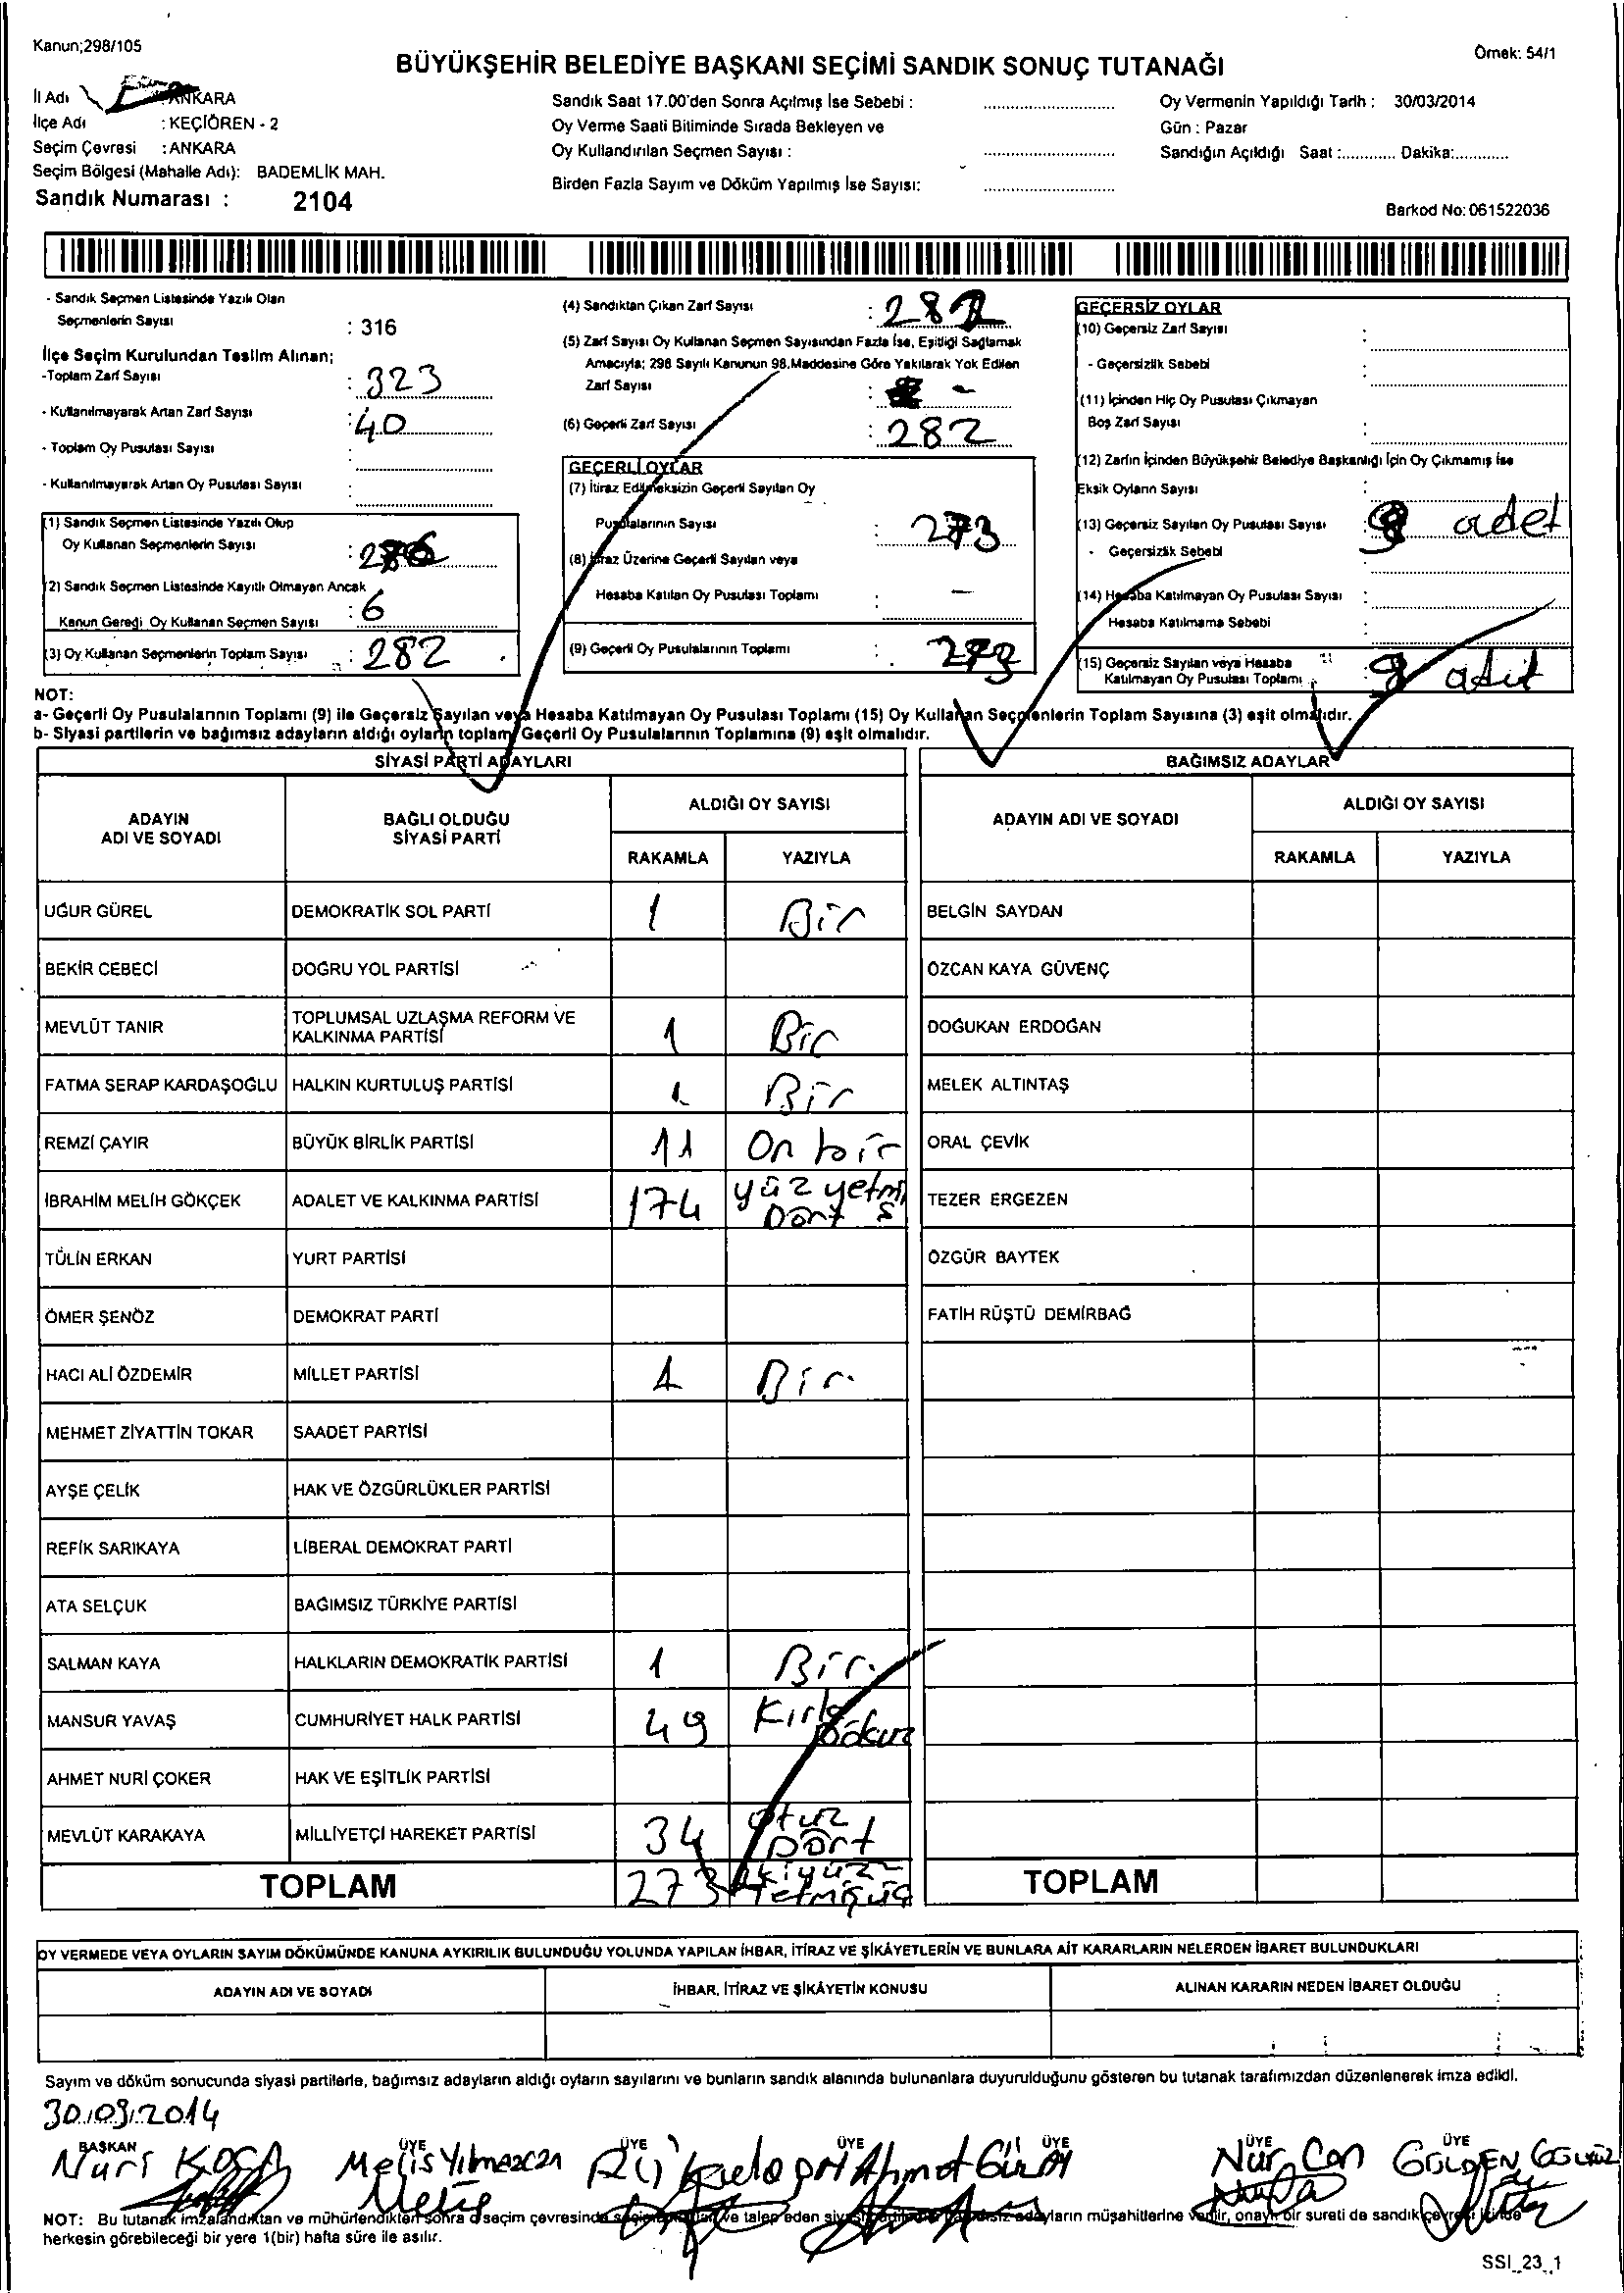 Kanun;298/105
BÜYÜKŞEHİR BELEDİYE BAŞKANI SEÇİMİ SANDIK SONUÇ TUTANAĞI
Örnek: 54/1
İl Adı : ANKARA
İlçe Adı : KEÇİÖREN - 2
Seçim Çevresi : ANKARA
Seçim Bölgesi (Mahalle Adı): BADEMLİK MAH.
Sandık Numarası : 2104
Sandık Saat 17.00'den Sonra Açılmış İse Sebebi :
Oy Verme Saati Bitiminde Sırada Bekleyen ve
Oy Kullandırılan Seçmen Sayısı :
Birden Fazla Sayım ve Döküm Yapılmış İse Sayısı:
Oy Vermenin Yapıldığı Tarih : 30/03/2014
Gün : Pazar
Sandığın Açıldığı Saat :............ Dakika:............
Barkod No: 061522036
- Sandık Seçmen Listesinde Yazılı Olan
Seçmenlerin Sayısı : 316
İlçe Seçim Kurulundan Teslim Alınan;
-Toplam Zarf Sayısı : 323
- Kullanılmayarak Artan Zarf Sayısı : 40
- Toplam Oy Pusulası Sayısı :
- Kullanılmayarak Artan Oy Pusulası Sayısı :
(1) Sandık Seçmen Listesinde Yazılı Olup
Oy Kullanan Seçmenlerin Sayısı : 276
(2) Sandık Seçmen Listesinde Kayıtlı Olmayan Ancak
Kanun Gereği Oy Kullanan Seçmen Sayısı : 6
(3) Oy Kullanan Seçmenlerin Toplam Sayısı : 282
(4) Sandıktan Çıkan Zarf Sayısı : 282
(5) Zarf Sayısı Oy Kullanan Seçmen Sayısından Fazla İse, Eşitliği Sağlamak
Amacıyla; 298 Sayılı Kanunun 98.Maddesine Göre Yakılarak Yok Edilen
Zarf Sayısı : -
(6) Geçerli Zarf Sayısı : 282
GEÇERLİ OYLAR
(7) İtiraz Edilmeksizin Geçerli Sayılan Oy
Pusulalarının Sayısı : 273
(8) İtiraz Üzerine Geçerli Sayılan veya
Hesaba Katılan Oy Pusulası Toplamı : -
(9) Geçerli Oy Pusulalarının Toplamı : 273
GEÇERSİZ OYLAR
(10) Geçersiz Zarf Sayısı :
- Geçersizlik Sebebi :
(11) İçinden Hiç Oy Pusulası Çıkmayan
Boş Zarf Sayısı :
(12) Zarfın İçinden Büyükşehir Belediye Başkanlığı İçin Oy Çıkmamış İse
Eksik Oyların Sayısı :
(13) Geçersiz Sayılan Oy Pusulası Sayısı : 9 adet
- Geçersizlik Sebebi :
(14) Hesaba Katılmayan Oy Pusulası Sayısı :
Hesaba Katılmama Sebebi :
(15) Geçersiz Sayılan veya Hesaba
Katılmayan Oy Pusulası Toplamı : 9 adet
NOT:
a- Geçerli Oy Pusulalarının Toplamı (9) ile Geçersiz Sayılan veya Hesaba Katılmayan Oy Pusulası Toplamı (15) Oy Kullanan Seçmenlerin Toplam Sayısına (3) eşit olmalıdır.
b- Siyasi partilerin ve bağımsız adayların aldığı oyların toplamı Geçerli Oy Pusulalarının Toplamına (9) eşit olmalıdır.
SİYASİ PARTİ ADAYLARI
ADAYIN ADI VE SOYADI
BAĞLI OLDUĞU SİYASİ PARTİ
ALDIĞI OY SAYISI
RAKAMLA YAZIYLA
UĞUR GÜREL DEMOKRATİK SOL PARTİ 1 Bir
BEKİR CEBECİ DOĞRU YOL PARTİSİ
MEVLÜT TANIR TOPLUMSAL UZLAŞMA REFORM VE KALKINMA PARTİSİ 1 Bir
FATMA SERAP KARDAŞOĞLU HALKIN KURTULUŞ PARTİSİ 1 Bir
REMZİ ÇAYIR BÜYÜK BİRLİK PARTİSİ 11 On bir
İBRAHİM MELİH GÖKÇEK ADALET VE KALKINMA PARTİSİ 174 yüz yetmiş Dört
TÜLİN ERKAN YURT PARTİSİ
ÖMER ŞENÖZ DEMOKRAT PARTİ
HACI ALİ ÖZDEMİR MİLLET PARTİSİ 1 Bir
MEHMET ZİYATTİN TOKAR SAADET PARTİSİ
AYŞE ÇELİK HAK VE ÖZGÜRLÜKLER PARTİSİ
REFİK SARIKAYA LİBERAL DEMOKRAT PARTİ
ATA SELÇUK BAĞIMSIZ TÜRKİYE PARTİSİ
SALMAN KAYA HALKLARIN DEMOKRATİK PARTİSİ 1 Bir
MANSUR YAVAŞ CUMHURİYET HALK PARTİSİ 49 Kırk Dokuz
AHMET NURİ ÇOKER HAK VE EŞİTLİK PARTİSİ
MEVLÜT KARAKAYA MİLLİYETÇİ HAREKET PARTİSİ 34 Otuz Dört
TOPLAM 273 ikiyüz Yetmişüç
BAĞIMSIZ ADAYLAR
ADAYIN ADI VE SOYADI
ALDIĞI OY SAYISI
RAKAMLA YAZIYLA
BELGİN SAYDAN
ÖZCAN KAYA GÜVENÇ
DOĞUKAN ERDOĞAN
MELEK ALTINTAŞ
ORAL ÇEVİK
TEZER ERGEZEN
ÖZGÜR BAYTEK
FATİH RÜŞTÜ DEMİRBAĞ
TOPLAM
OY VERMEDE VEYA OYLARIN SAYIM DÖKÜMÜNDE KANUNA AYKIRILIK BULUNDUĞU YOLUNDA YAPILAN İHBAR, İTİRAZ VE ŞİKÂYETLERİN VE BUNLARA AİT KARARLARIN NELERDEN İBARET BULUNDUKLARI
ADAYIN ADI VE SOYADI İHBAR, İTİRAZ VE ŞİKÂYETİN KONUSU ALINAN KARARIN NEDEN İBARET OLDUĞU
Sayım ve döküm sonucunda siyasi partilerle, bağımsız adayların aldığı oyların sayılarını ve bunların sandık alanında bulunanlara duyurulduğunu gösteren bu tutanak tarafımızdan düzenlenerek imza edildi.
30.03.2014
BAŞKAN ÜYE ÜYE ÜYE ÜYE ÜYE ÜYE
Nuri KOÇA Melis Yılmazcan Ahmet Nur Can GÜLDEN
NOT: Bu tutanak imzalandıktan ve mühürlendikten sonra o seçim çevresinde ve talep eden adayların müşahitlerine verilir, onaylı bir sureti de sandık çevresi içinde
herkesin görebileceği bir yere 1(bir) hafta süre ile asılır.
SSI_23_1